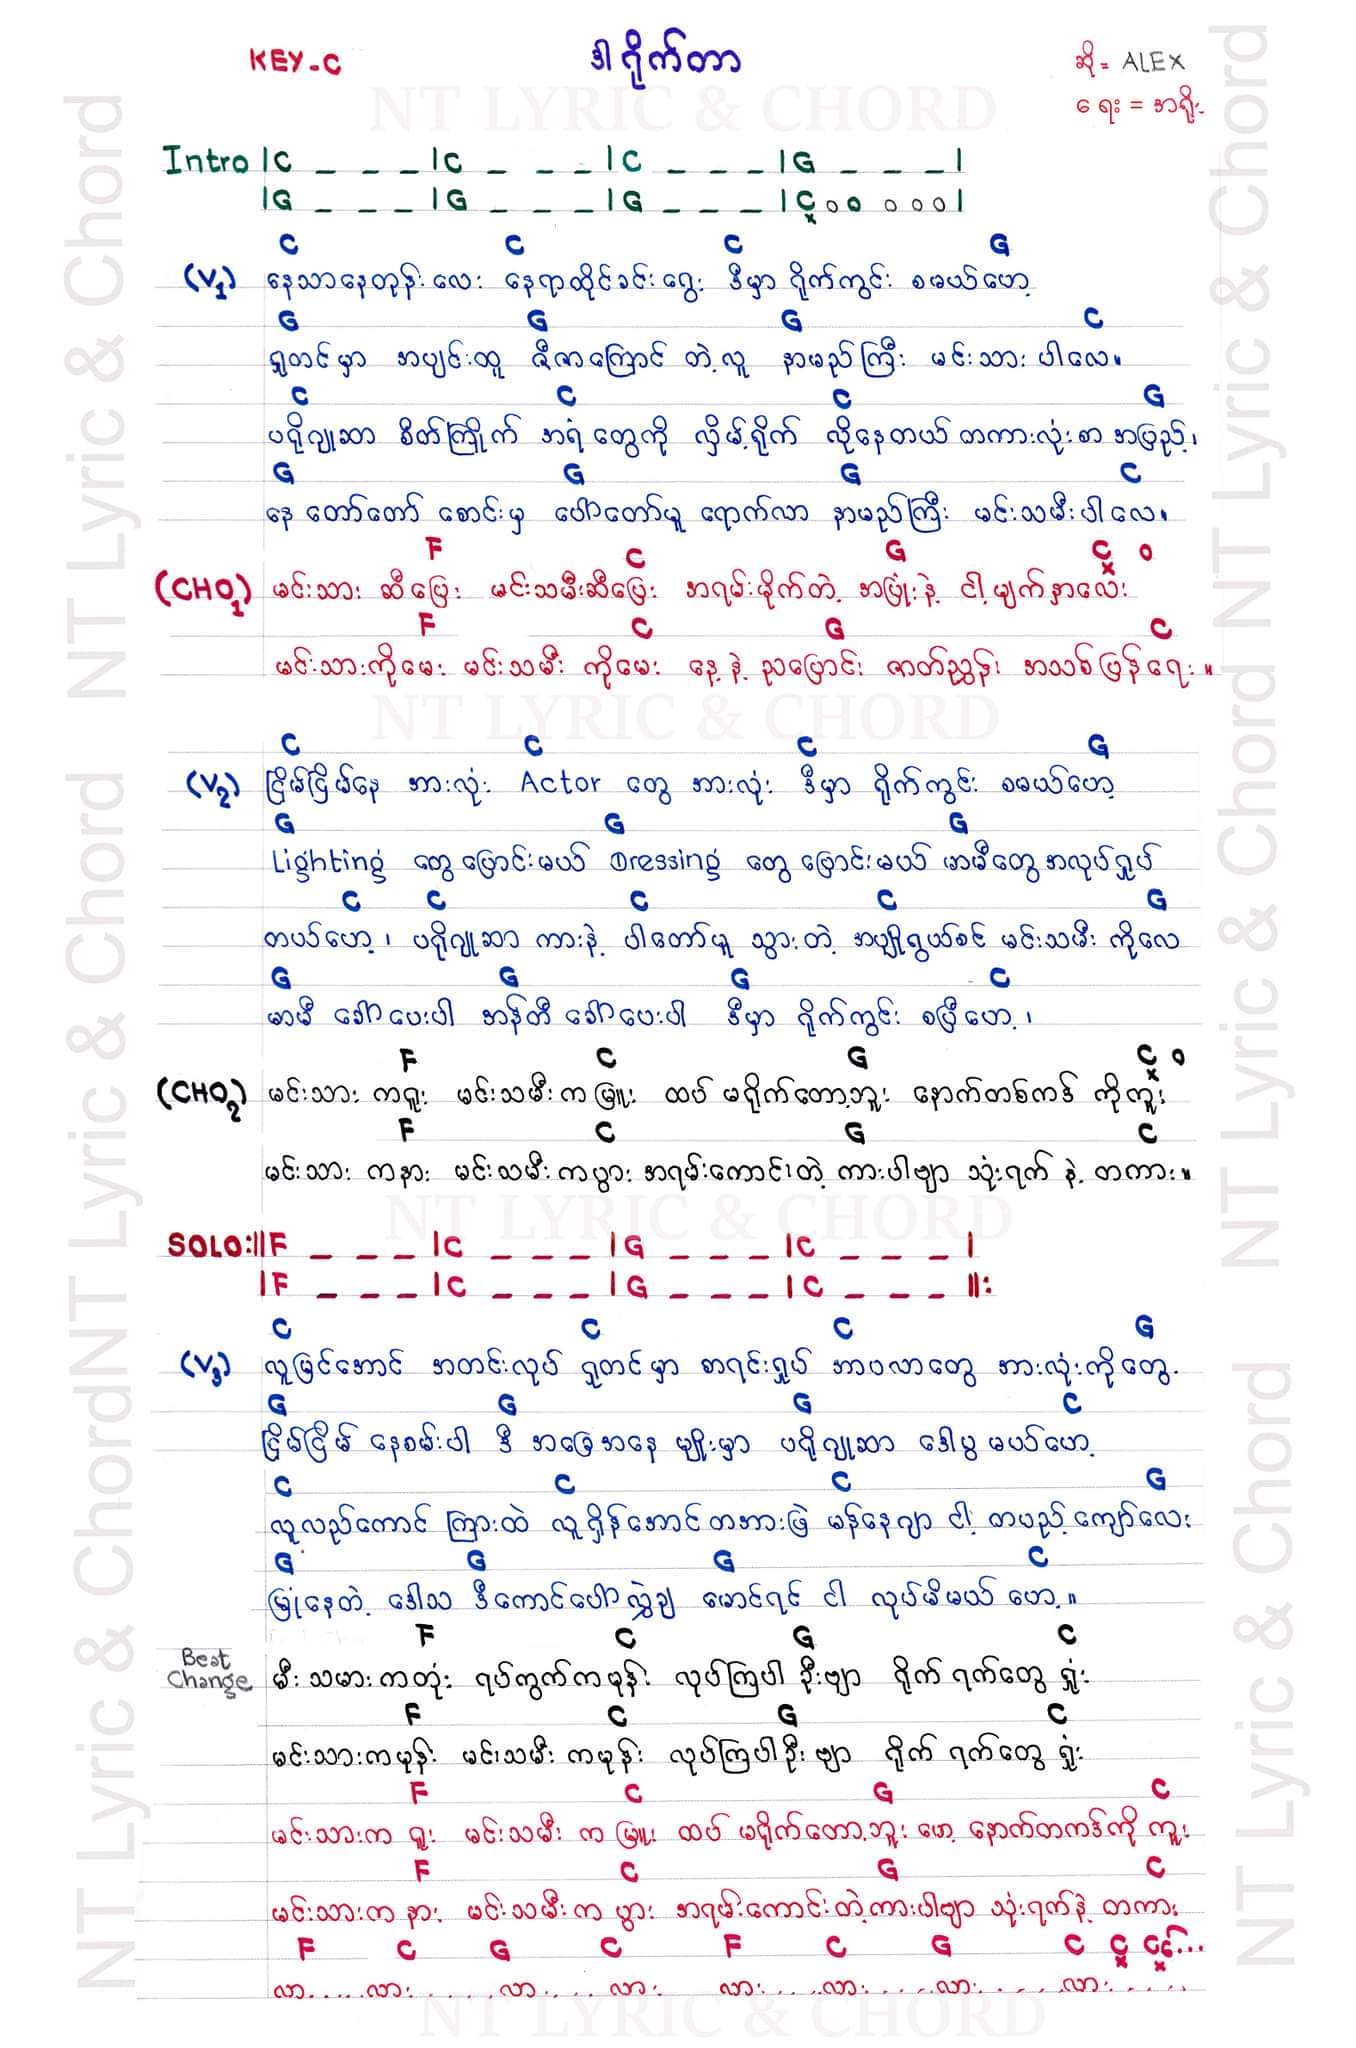 KEY-C
ဒါရိုက်တာ
ဆို = ALEX
ရေး = အရိုး
NT LYRIC & CHORD
Intro |C _ _ _ |C _ _ _ |C _ _ _ |G _ _ _ |
|G _ _ _ |G _ _ _ |G _ _ _ |C o o o o o |
C C C G
(V1) နေသာနေတုန်းလေး နေရာထိုင်ခင်းရွေး ဒီမှာ ရိုက်ကွင်း စမယ်ဟေ့
G G G C
ရှုတင်မှာ အပျင်းထူ ဇီဇာကြောင် တဲ့လူ နာမည်ကြီး မင်းသားပါလေ။
C C C G
ပရိုဂျုဆာ စိတ်ကြိုက် အရံတွေကို လှိမ့်ရိုက် လိုနေတယ် တကားလုံးစာ အပြည့်၊
G G G C
နေ တော်တော် စောင်းမှ ပေါ်တော်မူ ရောက်လာ နာမည်ကြီး မင်းသမီးပါလေ။
F C G C o
(CHO1) မင်းသား ဆီပြေး မင်းသမီးဆီပြေး အရမ်းမိုက်တဲ့ အပြုံးနဲ့ ငါ့မျက်နှာလေး
F C G C
မင်းသားကိုမေး မင်းသမီး ကိုမေး နေ့နဲ့ညပြောင်း ဇာတ်ညွှန်း အသစ်ပြန်ရေး။
NT LYRIC & CHORD
C C C G
(V2) ငြိမ်ငြိမ်နေ အားလုံး Actor တွေ အားလုံး ဒီမှာ ရိုက်ကွင်း စမယ်ဟေ့
G G G
Lighting တွေပြောင်းမယ် Dressing တွေပြောင်းမယ် မာမီတွေအလုပ်ရှုပ်
C C C C G
တယ်ဟေ့၊ ပရိုဂျုဆာ ကားနဲ့ ပါတော်မူ သွားတဲ့ အပျိုရွယ်စင် မင်းသမီး ကိုလေ
G G G C
မာမီ ခေါ်ပေးပါ အန်တီ ခေါ်ပေးပါ ဒီမှာ ရိုက်ကွင်း စပြီဟေ့၊
F C G C o
(CHO2) မင်းသား ကရူး မင်းသမီးကမြူး ထပ် မရိုက်တော့ဘူး နောက်တစ်ကဒ် ကိုကူး
F C G C
မင်းသား ကနား မင်းသမီးကပွား အရမ်းကောင်းတဲ့ ကားပါဗျာ သုံးရက် နဲ့ တကား။
NT LYRIC & CHORD
SOLO:||F _ _ _ |C _ _ _ |G _ _ _ |C _ _ _ |
|F _ _ _ |C _ _ _ |G _ _ _ |C _ _ _ ||:
C C C G
(V3) လူမြင်အောင် အတင်းလုပ် ရှုတင်မှာ စာရင်းရှုပ် အာပလာတွေ အားလုံးကိုတွေ့
G G G C
ငြိမ်ငြိမ် နေစမ်းပါ ဒီ အခြေအနေ မျိုးမှာ ပရိုဂျုဆာ ဒေါပွ မယ်ဟေ့
C C C G
လူလည်ကောင် ကြားထဲ လူရှိန်အောင်တအားဖြဲ မန်နေဂျာ ငါ့ တပည့်ကျော်လေး
G G G C
မြုံနေတဲ့ ဒေါသ ဒီကောင်ပေါ်လွှဲချ မောင်ရင် ငါ လုပ်မိမယ် ဟေ့။
F C G C
Beat Change မီးသမားကတုံး ရပ်ကွက်ကမုန်း လုပ်ကြပါ ဦးဗျာ ရိုက် ရက်တွေ ရှုံး
F C G C
မင်းသားကမုန်း မင်းသမီး ကမုန်း လုပ်ကြပါဦး ဗျာ ရိုက် ရက်တွေ ရှုံး
F C G C
မင်းသားက ရူး မင်းသမီး က မြူး ထပ် မရိုက်တော့ဘူး ဟေ့ နောက်တကဒ်ကို ကူး
F C G C
မင်းသားက နား မင်းသမီးက ပွား အရမ်းကောင်းတဲ့ကားပါဗျာ သုံးရက်နဲ့ တကား
F C G C F C G C C C...
လား....လား.......လား....လား.....လား.....လား......လား......လား.......
NT LYRIC & CHORD
NT Lyric & Chord
NT Lyric & Chord
NT Lyric & Chord
NT Lyric & Chord
NT Lyric & Chord
NT Lyric & Chord